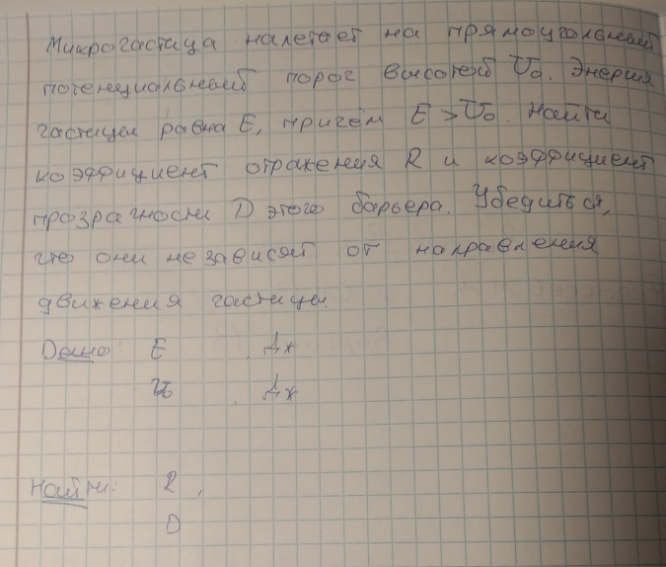 Микрочастица налетает на прямоугольный
потенциальный порог высотой U₀. Энергия
частицы равна E, причём E > U₀. Найти
коэффициент отражения R и коэффициент
прозрачности D этого барьера. Убедиться,
что они не зависят от направления
движения частицы.
Дано: E Дж
U₀ Дж
Найти: R,
D